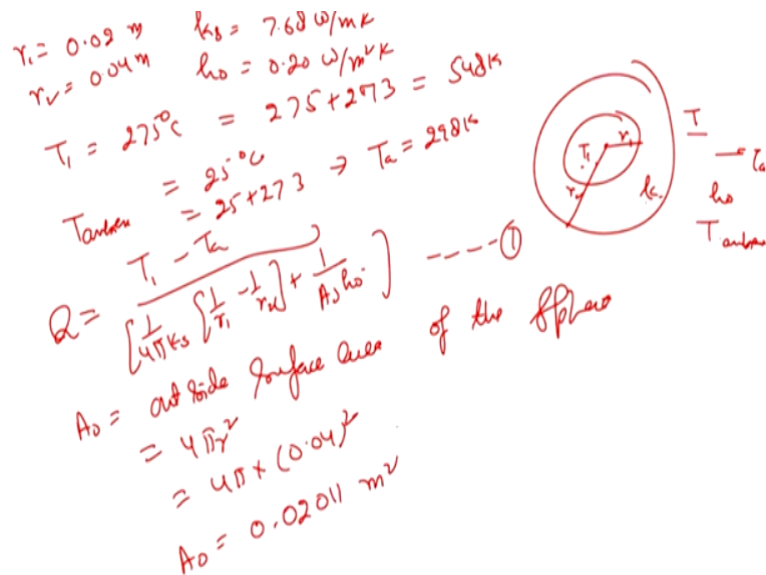 r₁ = 0.02 m k_s = 7.68 W/mK
r₂ = 0.04 m h₀ = 0.20 W/m²K
T₁ = 275°C = 275+273 = 548K
= 25°C
= 25+273 → Ta = 298K
Q = T₁ - Ta / [1/4πks [1/r₁ - 1/r₂] + 1/A₀h₀] ----①
A₀ = outside Surface Area of the Sphere
= 4πr²
= 4π × (0.04)²
A₀ = 0.02011 m²
T₁ r₁ r₂ k
T
→ Ta
h₀